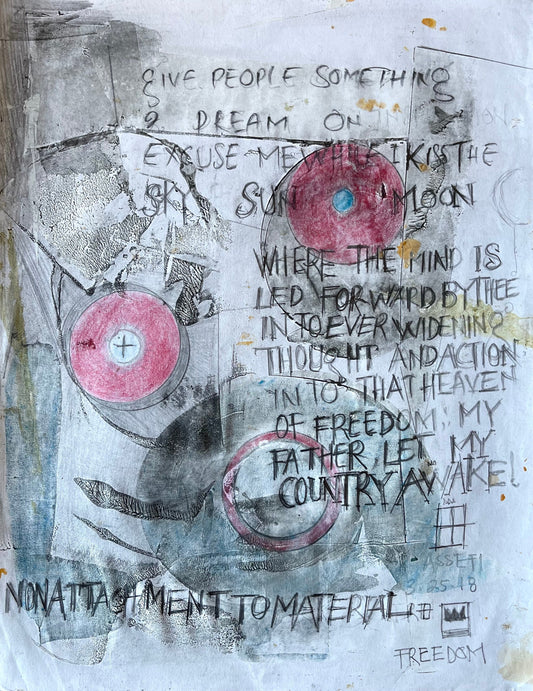 GIVE PEOPLE SOMETHING
2 DREAM ON
EXCUSE ME WHILE I KISS THE
SKY SUN MOON
WHERE THE MIND IS
LED FORWARD BY THEE
INTO EVER WIDENING
THOUGHT AND ACTION
IN TO THAT HEAVEN
OF FREEDOM, MY
FATHER LET MY
COUNTRY AWAKE!
SETI
3.25.18
NONATTACHMENT TO MATERIAL
FREEDOM